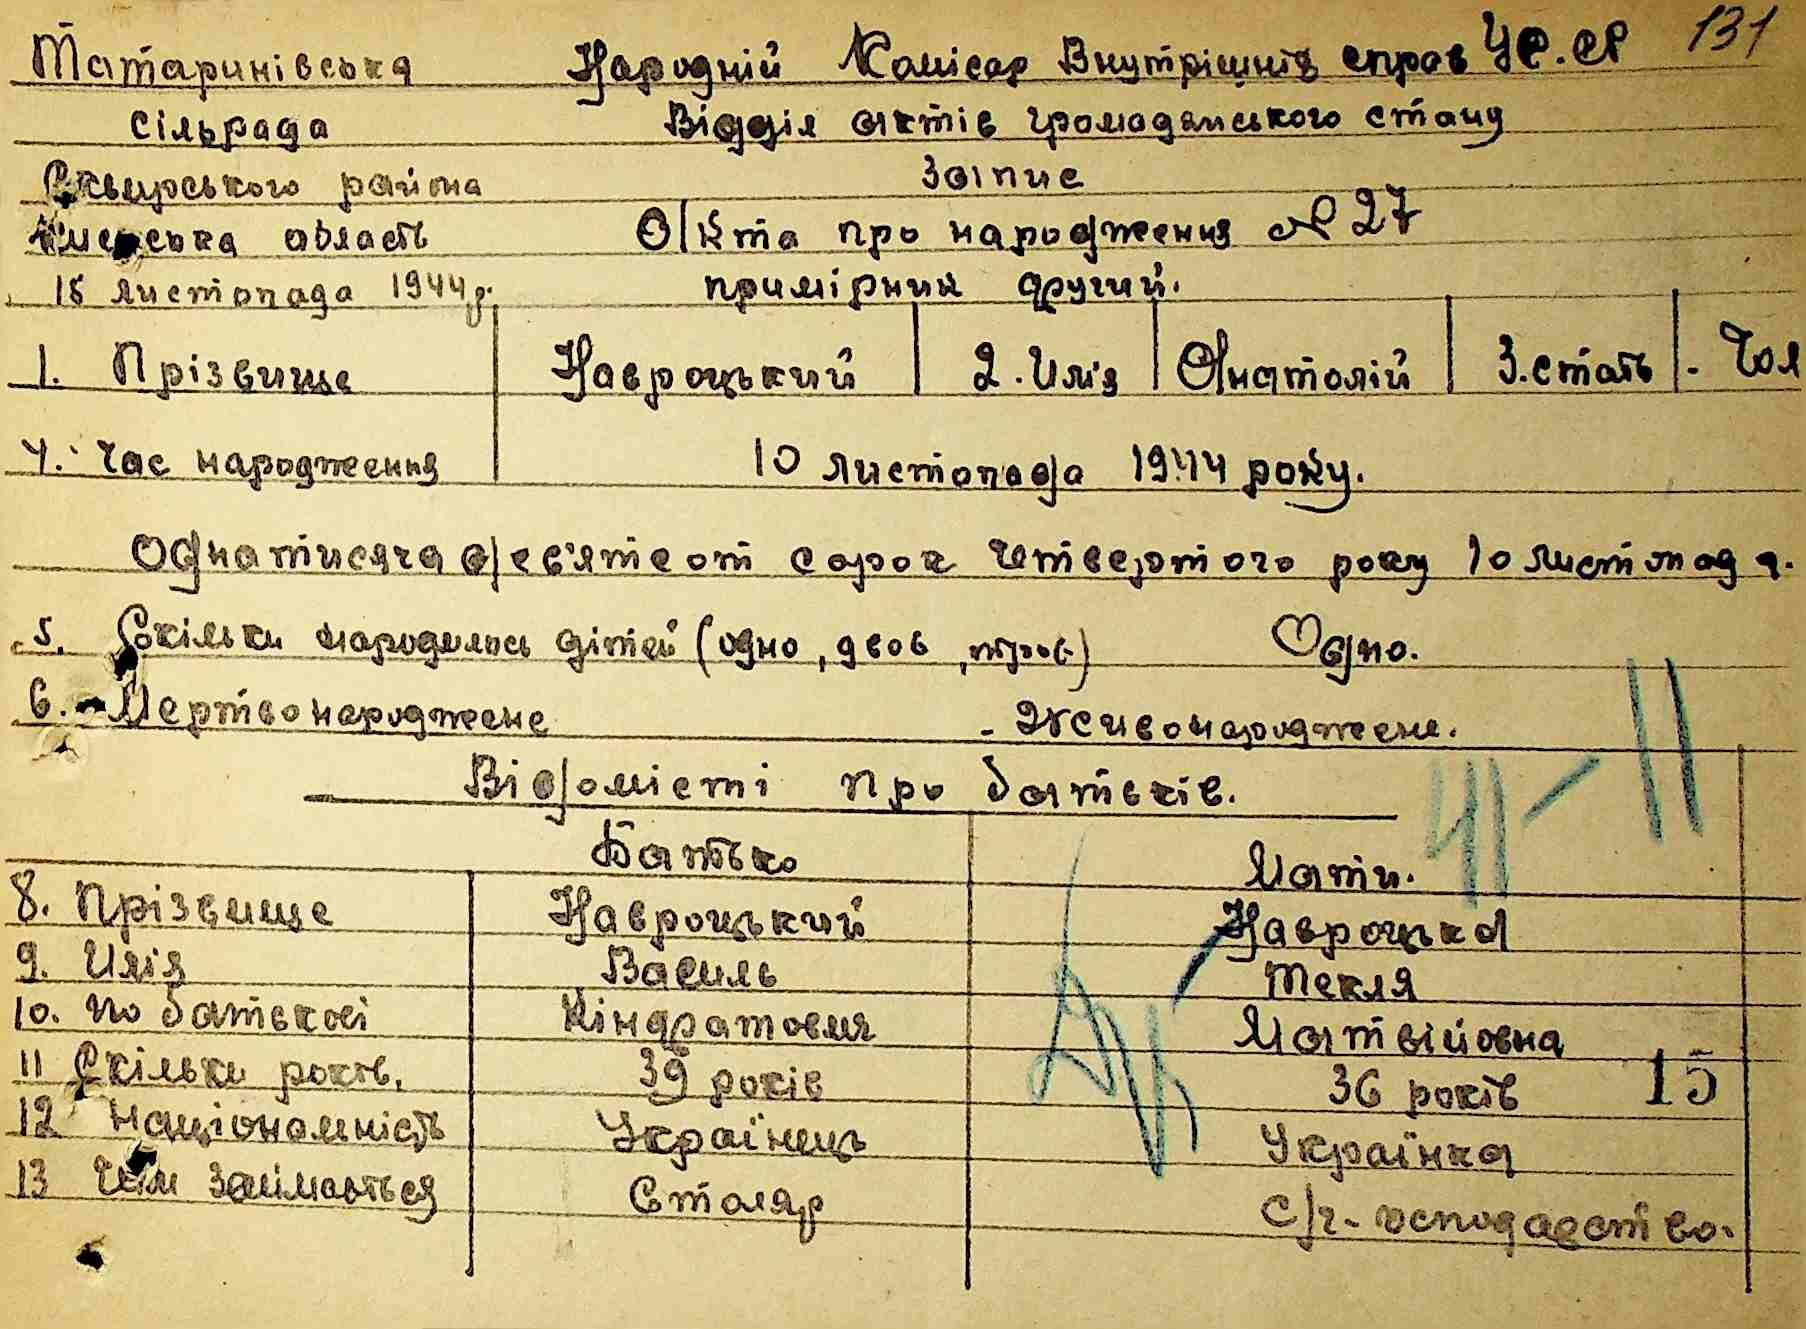 131
Татаринівська Народній Комісар Внутрішніх справ УС.СР
Сільрада Відділ актів громадянського стану
Сквирського района Запис
Киевська область Акта про народження № 27
18 листопада 1944 р. примірник другий.
1. Прізвище Навроцький 2. Имія Анатолій 3. стать - Чол
4. Час народження 10 листопада 1944 року.
Однатисяча девьятсот сорок четвертого року 10 листопада.
5. Скільки народилось дітей (одно, двов, тров) Одно.
6. - Мертвонароджене - Живонароджене.
Відомісті про батьків.
Батько Мати. 41-11
8. Прізвище Навроцький Навроцька
9. Имія Василь Текля
10. по батькові Кіндратович Матвійовна
11 Скільки років. 39 років 36 років 15
12 національність Українець Українка
13 Чим займається Столяр С/г. господарство.